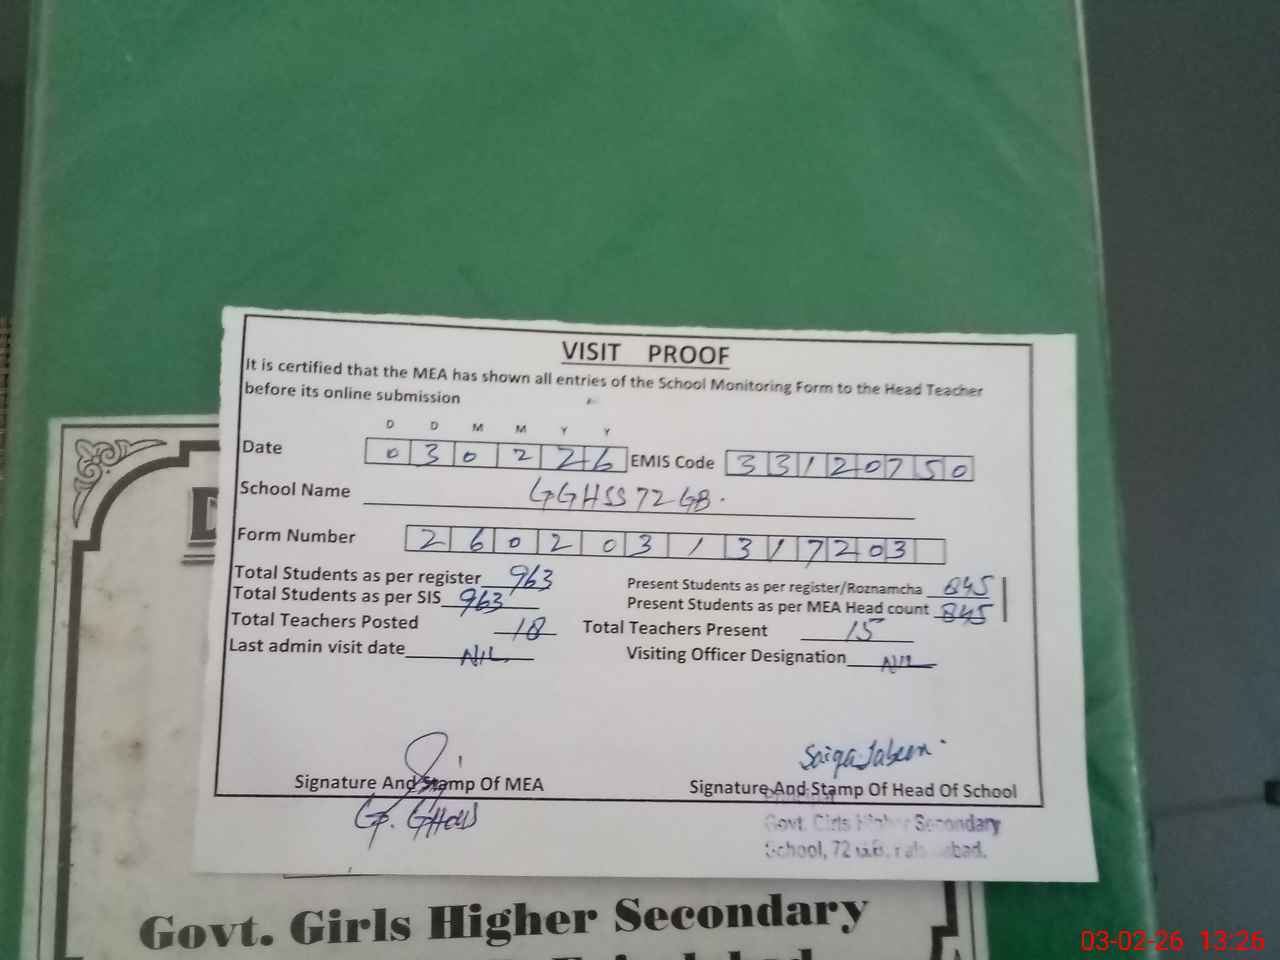 VISIT PROOF
It is certified that the MEA has shown all entries of the School Monitoring Form to the Head Teacher
before its online submission
D D M M Y Y
Date 0 3 0 2 2 6 EMIS Code 3 3 1 2 0 7 5 0
School Name GGHSS 72 GB.
Form Number 2 6 0 2 0 3 1 3 1 7 2 0 3
Total Students as per register 963 Present Students as per register/Roznamcha 845
Total Students as per SIS 963 Present Students as per MEA Head count 845
Total Teachers Posted 18 Total Teachers Present 15
Last admin visit date NIL Visiting Officer Designation NIL
Saiqa Jabeen
Signature And Stamp Of MEA Signature And Stamp Of Head Of School
Principal
Govt. Girls Higher Secondary
School, 72 G.B.
Govt. Girls Higher Secondary
03-02-26 13:26